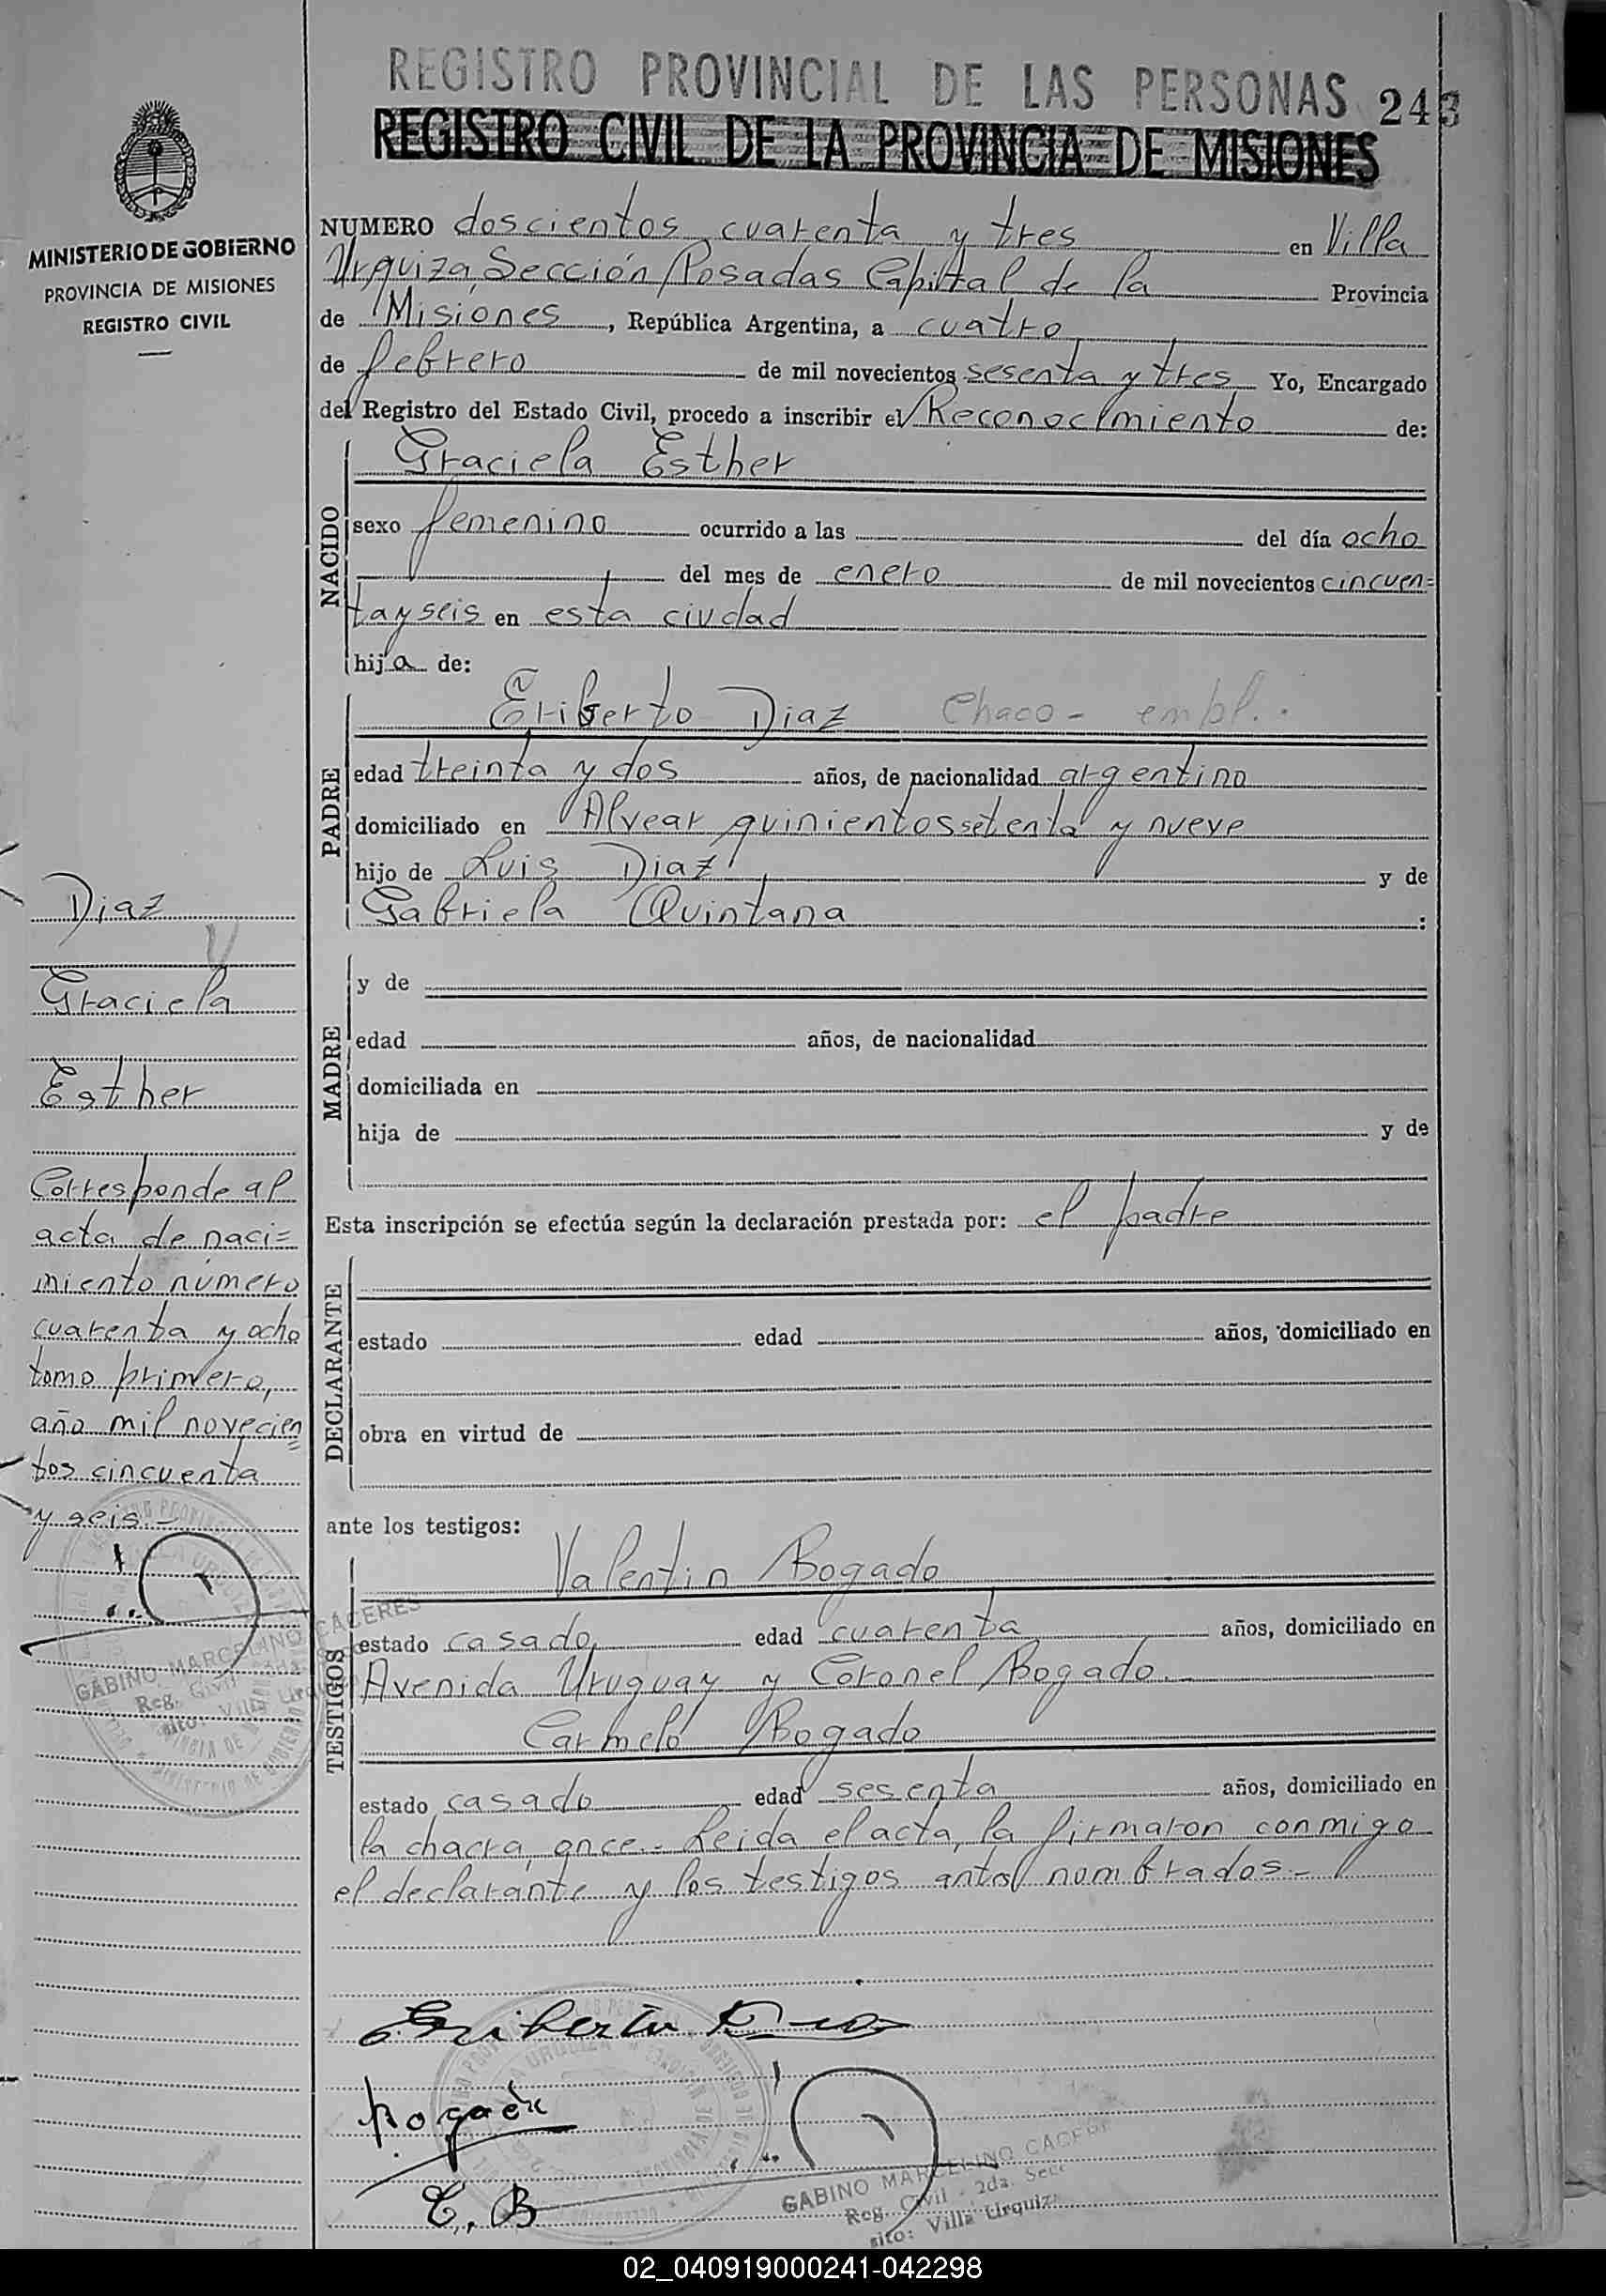 REGISTRO PROVINCIAL DE LAS PERSONAS 243
REGISTRO CIVIL DE LA PROVINCIA DE MISIONES
MINISTERIO DE GOBIERNO
PROVINCIA DE MISIONES
REGISTRO CIVIL
NUMERO doscientos cuarenta y tres en Villa
Urquiza, Sección Posadas Capital de la Provincia
de Misiones, República Argentina, a cuatro
de febrero de mil novecientos sesenta y tres Yo, Encargado
del Registro del Estado Civil, procedo a inscribir el Reconocimiento de:
NACIDO
Graciela Esther
sexo femenino ocurrido a las del día ocho
del mes de enero de mil novecientos cincuen=
tayseis en esta ciudad
hija de:
PADRE
Eriberto Diaz Chaco - empl..
edad treinta y dos años, de nacionalidad argentino
domiciliado en Alvear quinientos setenta y nueve
hijo de Luis Diaz y de
Gabriela Quintana :
MADRE
y de
edad años, de nacionalidad
domiciliada en
hija de y de
Esta inscripción se efectúa según la declaración prestada por: el padre
DECLARANTE
estado edad años, domiciliado en
obra en virtud de
ante los testigos:
TESTIGOS
Valentin Bogado
estado casado, edad cuarenta años, domiciliado en
Avenida Uruguay y Coronel Bogado.-
Carmelo Bogado
estado casado edad sesenta años, domiciliado en
la chacra once.- Leida el acta, la firmaron conmigo
el declarante y los testigos antes nombrados.-
Diaz
Graciela
Esther
Corresponde al
acta de naci=
miento número
cuarenta y ocho
tomo primero,
año mil novecien=
tos cincuenta
y seis.-
GABINO MARCELINO CACERES
Reg. Civil 2da.
sito: Villa Urquiza
Eriberto Diaz
Bogado
C. B
GABINO MARCELINO CACERES
Reg. Civil - 2da. Secc
sito: Villa Urquiza
02_040919000241-042298